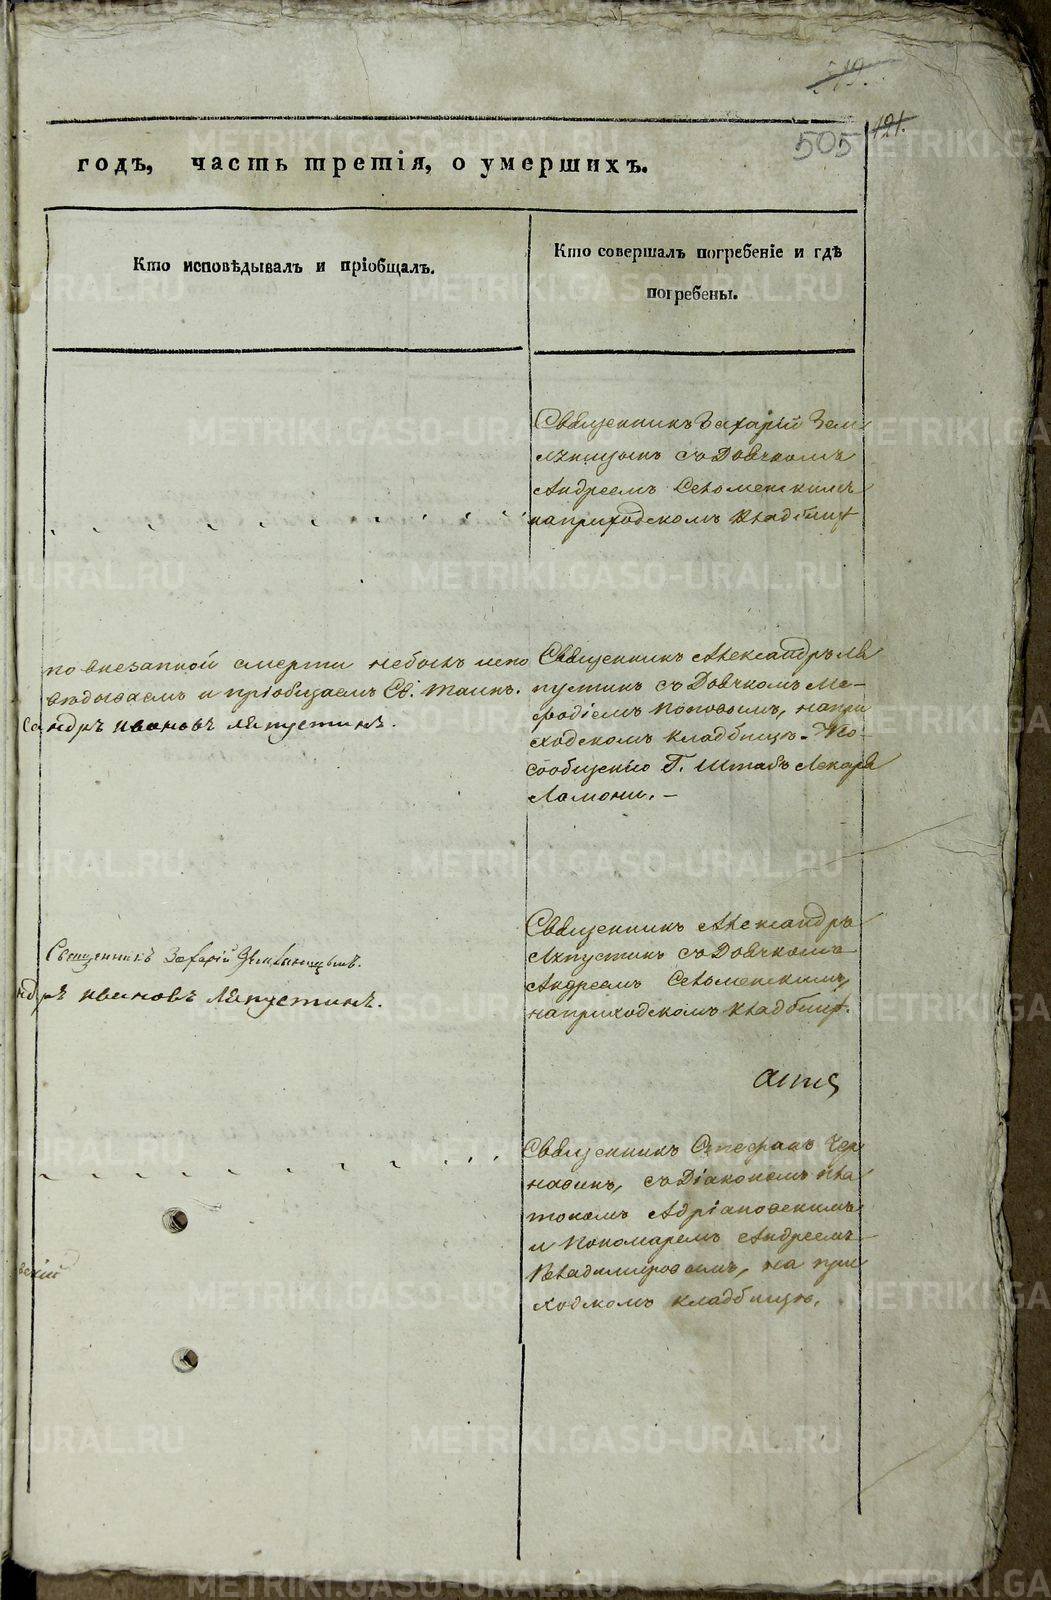 519.
505
121.
годъ, часть третія, о умершихъ.
Кто исповѣдывалъ и пріобщалъ.
Кто совершалъ погребеніе и гдѣ
погребены.
Священникъ Захарій Зем
съ Дьячкомъ
Андреемъ
на приходскомъ кладбищѣ
по внезапной смерти небылъ испо
вѣдываемъ и пріобщаемъ Св. Таинъ.
сандръ Ивановъ Ляпустинъ.
Священникъ Александръ Ля
пустинъ съ Дьячкомъ Ме-
фодіемъ Поповымъ, на при
ходскомъ кладбищѣ. По
сообщенію Г. Штабъ Лекаря
Ламони. –
Священникъ Захарій
ндръ Ивановъ Ляпустинъ.
Священникъ Александръ
Ляпустинъ съ Дьячкомъ
Андреемъ
на приходскомъ кладбищѣ.
Священникъ Стефанъ Чер
навинъ, съ Діакономъ Пла
тономъ Адріановскимъ
и Пономаремъ Андреемъ
Владимировымъ, на при
ходскомъ кладбищѣ.
вскій
METRIKI.GASO-URAL.RU